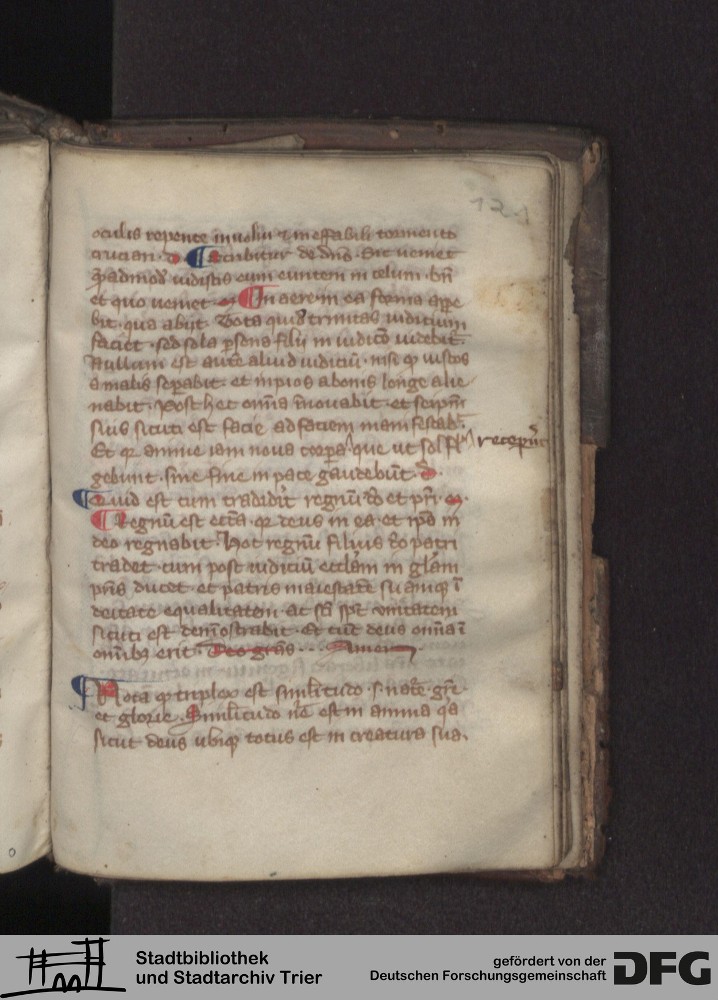 121
oculis repente involui & ineffabili tormento
cruciari. d. ¶ Scribitur de dn̄o. Sic veniet
q̄admod̄ vidistis eum euntem in celum.
et quo veniet. m̄ ¶ In aere in ea forma appe
bit. qua abijt. Tota quid̄ trinitas iudicium
faciet. sed sola p̄sona filii in iudicio videbit̄.
Nullum est aut̄e aliud iudiciū. nisi q̄ iustos
a malis sep̄abit. et inpios a bonis longe alie
nabit. Post hec om̄ia īnovabit. et seipm̄
suis sicuti est facie ad faciem manifestab̄.
Et q̄ anime iam nova corpa que ut sol ful
recep̄unt
gebunt. sine fine in pace gaudebūt. d̄
¶ Quid est cum tradid̄it regnū d̄o et p̄ri. m̄.
¶ Regnū est eccl̄ia. q̄ deus in ea. et ip̄a in
deo regnabit. Hoc regnū filius d̄o patri
tradet. cum post iudiciū eccl̄iam in gl̄iam
p̄ris ducet. et patris maiestat̄e suamq̄ ī
deitate equalitatem. ac sc̄i sp̄c vnitatem
sicuti est demōstrabit. Et tūc deus om̄ia ī
om̄ibȝ erit. Deo gr̄as . . . Amen.
¶ Nota q̄ triplex est simil̄itudo. s. nat̄e. gr̄e
et glorie. Simil̄itudo n̄e est in anima q̄a
sicut deus ubiq̄ totus est in creatura sua.
0
Stadtbibliothek
und Stadtarchiv Trier
gefördert von der
Deutschen Forschungsgemeinschaft
DFG